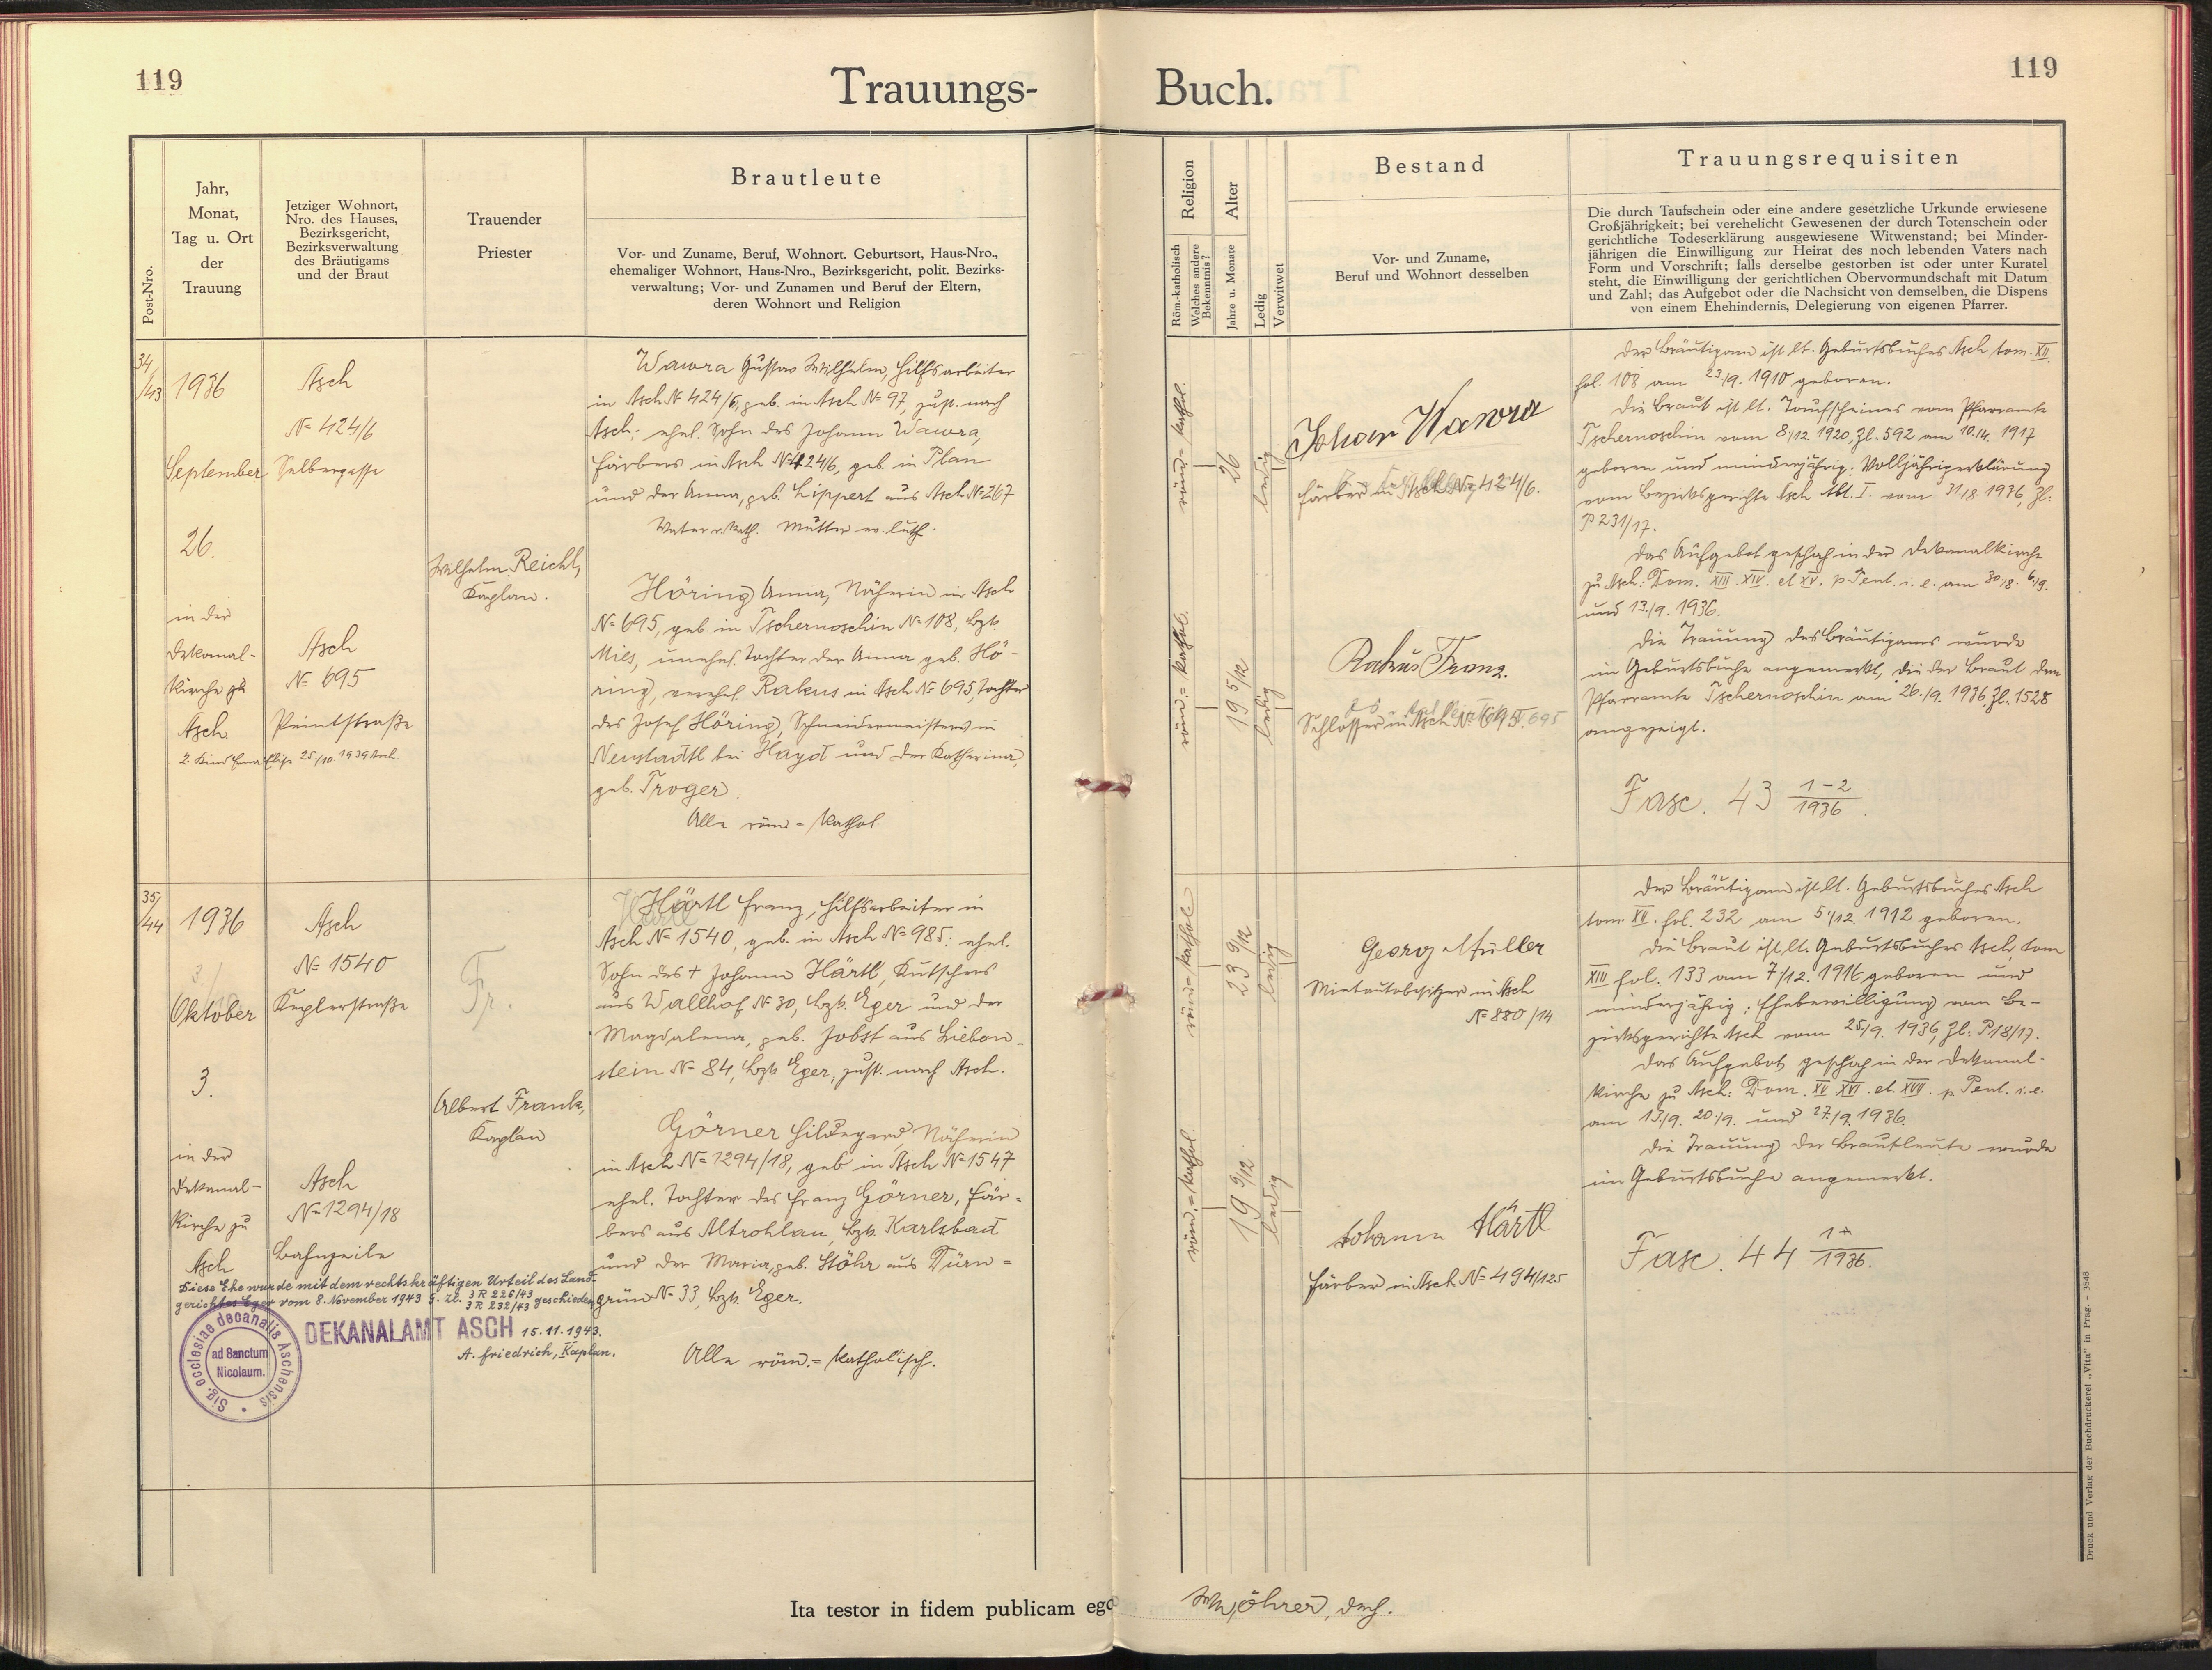 119
Trauungs-
Post-Nro.
Jahr,
Monat,
Tag u. Ort
der
Trauung
Jetziger Wohnort,
Nro. des Hauses,
Bezirksgericht,
Bezirksverwaltung
des Bräutigams
und der Braut
Trauender
Priester
Brautleute
Vor- und Zuname, Beruf, Wohnort. Geburtsort, Haus-Nro.,
ehemaliger Wohnort, Haus-Nro., Bezirksgericht, polit. Bezirks-
verwaltung; Vor- und Zunamen und Beruf der Eltern,
deren Wohnort und Religion
34/43
1936
September
26.
in der
Dekanal-
kirche zu
Asch
2. Kind Erna Elise 25/10. 1939
Asch
No 424/6
Selbergasse
Asch
No 695
Peintstraße
Wilhelm Reichl,
Kaplan.
Wawra Gustav Wilhelm, Hilfsarbeiter
in Asch No 424/6, geb. in Asch No 97, zust. nach
Asch; ehel. Sohn des Johann Wawra,
Färbers in Asch No 424/6, geb. in Plan
und der Anna, geb. Lippert aus Asch No 267
Vater r. kath. Mutter ev. luth.
Höring Anna, Näherin in Asch
No 695, geb. in Tschernoschin No 108, Bzk.
Mies, unehel. Tochter der Anna geb. Hö-
ring, verehel. Rakus in Asch No 695, Tochter
des Josef Höring, Schneidermeisters in
Neustadtl bei Hayd und der Katharina,
geb. Troger.
Alle röm = kathol.
35/44
1936
3./
Oktober
3.
in der
Dekanal-
kirche zu
Asch
Asch
No 1540
Keplerstraße
Asch
No 1294/18
Bahnzeile
Fr.
Albert Frank,
Kaplan
Härtl
Härtl Franz, Hilfsarbeiter in
Asch No 1540, geb. in Asch No 985; ehel.
Sohn des + Johann Härtl, Kutschers
aus Wallhof No 30, Bzk. Eger und der
Magdalena, geb. Jobst aus Lieben-
stein No 84, Bzk. Eger, zust. nach Asch.
Görner Hildegard, Näherin
in Asch No 1294/18, geb. in Asch No 1547
ehel. Tochter des Franz Görner, Fär-
bers aus Altrohlau, Bzk. Karlsbad
und der Maria, geb. Stöhr aus Dürn-
grün No 33, Bzk. Eger.
Alle röm. = katholisch.
Diese Ehe wurde mit dem rechtskräftigen Urteil des Land-
gerichtes Eger vom 8. November 1943 G. Zl. 3 R 226/43
3 R 232/43 geschieden
DEKANALAMT ASCH 15.11.1943.
A. Friedrich, Kaplan.
Sig. ecclesiae decanalis Aschensis
ad Sanctum
Nicolaum.
Ita testor in fidem publicam ego
119
Buch.
Religion
Röm.-katholisch
Welches andere
Bekenntnis?
Alter
Jahre u. Monate
Ledig
Verwitwet
Bestand
Vor- und Zuname,
Beruf und Wohnort desselben
Trauungsrequisiten
Die durch Taufschein oder eine andere gesetzliche Urkunde erwiesene
Großjährigkeit; bei verehelicht Gewesenen der durch Totenschein oder
gerichtliche Todeserklärung ausgewiesene Witwenstand; bei Minder-
jährigen die Einwilligung zur Heirat des noch lebenden Vaters nach
Form und Vorschrift; falls derselbe gestorben ist oder unter Kuratel
steht, die Einwilligung der gerichtlichen Obervormundschaft mit Datum
und Zahl; das Aufgebot oder die Nachsicht von demselben, die Dispens
von einem Ehehindernis, Delegierung von eigenen Pfarrer.
röm = kathol.
26
ledig
Johan Wawra
Färber in Asch No 424/6.
röm. = kathol.
19 5/12
ledig
Rakus Franz.
Schlosser in Asch No 695.
Der Bräutigam ist lt. Geburtsbuches Asch tom. XII
fol. 108 am 23./9. 1910 geboren.
Die Braut ist lt. Taufscheines vom Pfarramte
Tschernoschin vom 8/12 1920, Zl. 592 am 10./4. 1917
geboren und minderjährig: Volljährigerklärung
vom Bezirksgerichte Asch Abt. I. vom 31./8. 1936, Zl.
P 231/17.
Das Aufgebot geschah in der Dekanalkirche
zu Asch: Dom. XIII. XIV. et XV. p. Pent. i. e. am 30./8. 6./9.
und 13./9. 1936.
Die Trauung des Bräutigams wurde
im Geburtsbuche angemerkt, die der Braut dem
Pfarramte Tschernoschin am 26./9. 1936 Zl. 1528
angezeigt.
Fasc. 43 1-2/1936.
röm = kathol.
23 9/12
ledig
Georg Müller
Mietautobesitzer in Asch
No 880/14
röm. = kathol.
19 9/12
ledig
Johann Härtl
Färber in Asch No 494/125
Der Bräutigam ist lt. Geburtsbuches Asch
tom. XII. fol. 232 am 5./12. 1912 geboren.
Die Braut ist lt. Geburtsbuches Asch, tom
XIII fol. 133 am 7/12. 1916 geboren und
minderjährig; Ehebewilligung vom Be-
zirksgerichte Asch vom 25/9. 1936, Zl: P 18/17.
Das Aufgebot geschah in der Dekanal-
kirche zu Asch: Dom. XV. XVI. et. XVII. p. Pent. i. e.
am 13./9. 20./9. und 27./9. 1936.
Die Trauung der Brautleute wurde
im Geburtsbuche angemerkt.
Fasc. 44 1/1936.
Druck und Verlag der Buchdruckerei „Vita" in Prag. – 3848